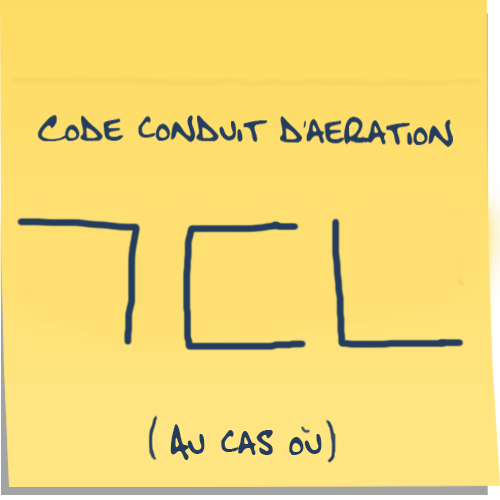 CODE CONDUIT D'AERATION
7CL
(AU CAS OÙ)